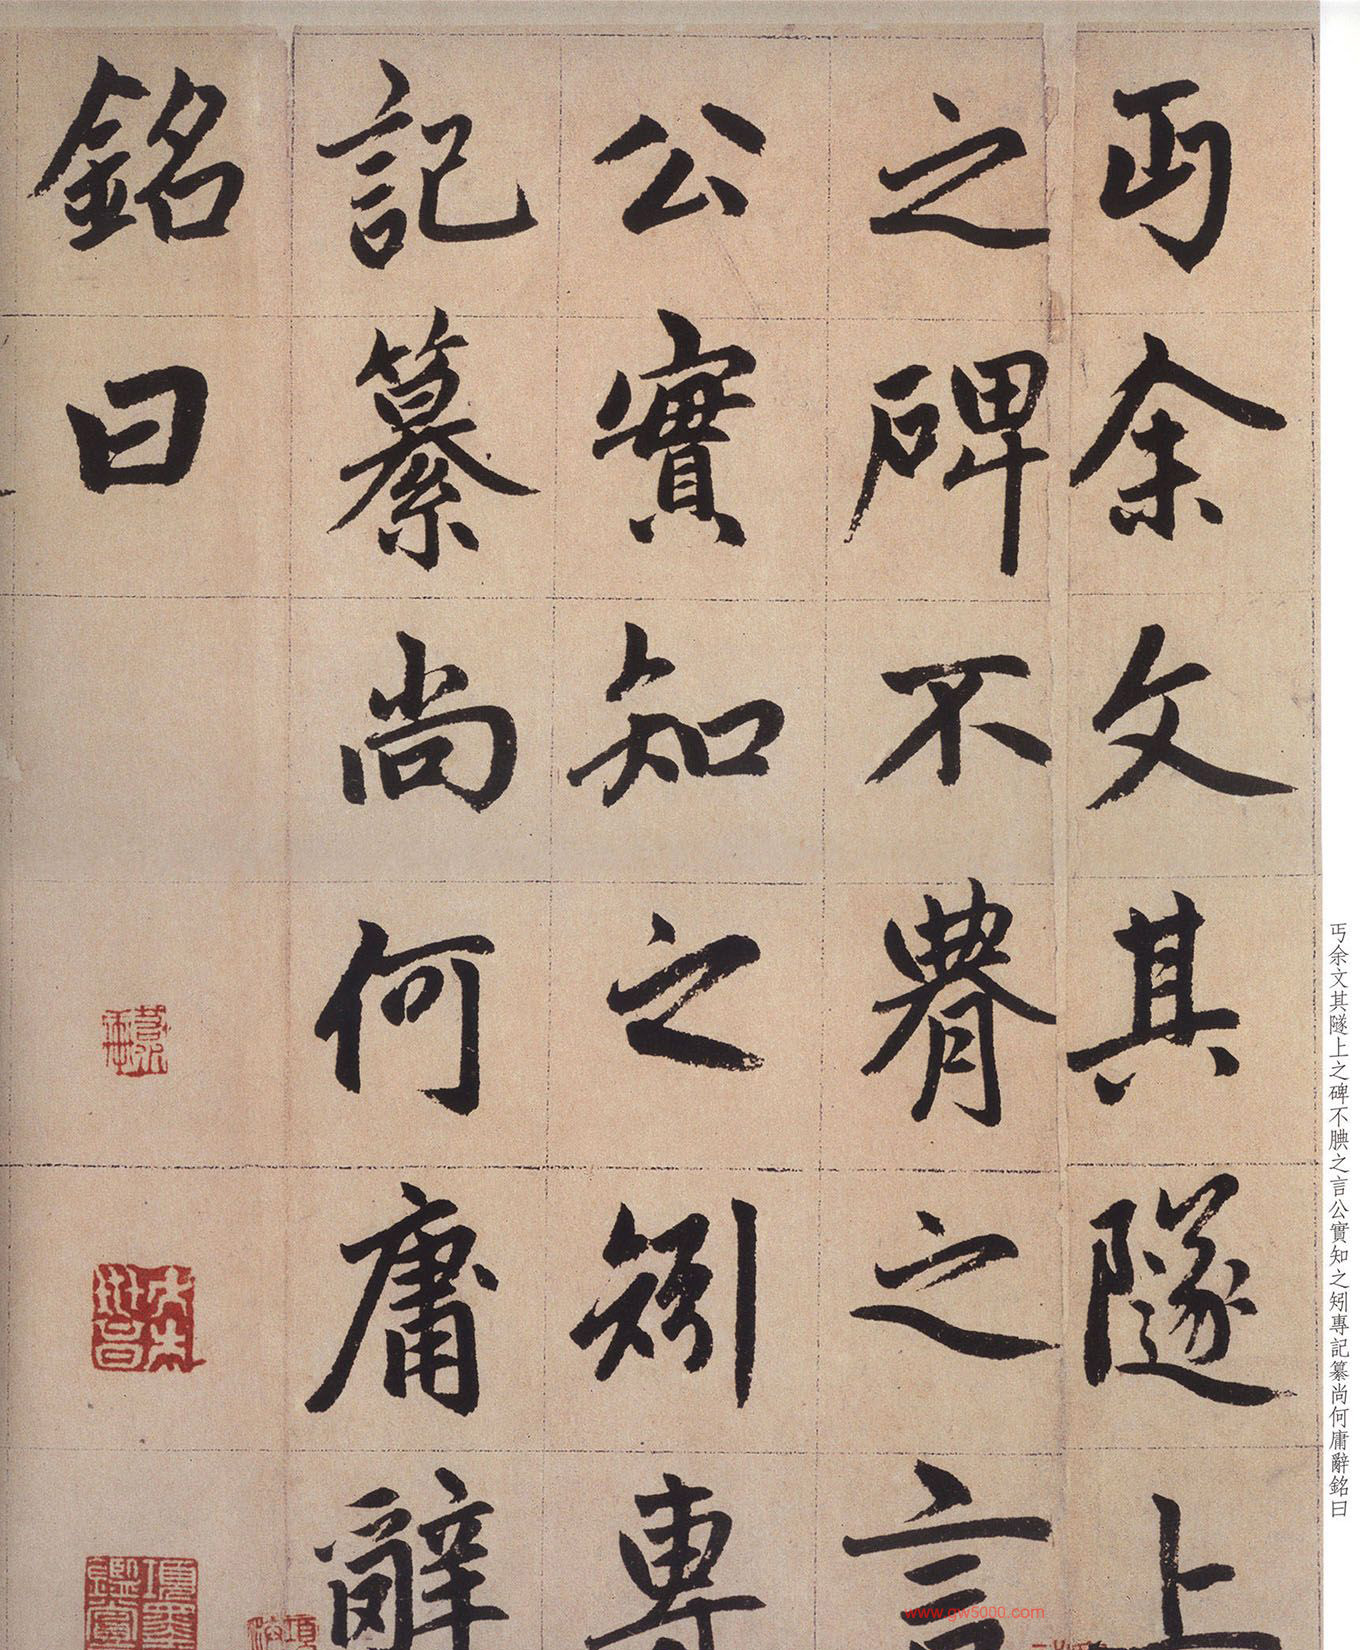 丏余文其隧上
之碑不腆之言
公實知之矧專
記纂尚何庸辭
銘曰
丏余文其隧上之碑不腆之言公實知之矧專記纂尚何庸辭銘曰
www.gw5000.com